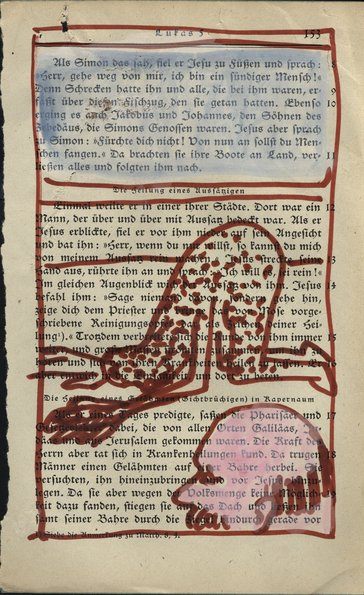 Lukas 5 153
Als Simon das sah, fiel er Jesu zu Füßen und sprach: 8
Herr, gehe weg von mir, ich bin ein sündiger Mensch!«
Denn Schrecken hatte ihn und alle, die bei ihm waren, er- 9
faßt über diesen Fischzug, den sie getan hatten. Ebenso 10
erging es auch Jakobus und Johannes, den Söhnen des
Zebedäus, die Simons Genossen waren. Jesus aber sprach
zu Simon: »Fürchte dich nicht! Von nun an sollst du Men-
schen fangen.« Da brachten sie ihre Boote an Land, ver- 11
ließen alles und folgten ihm nach.
Die Heilung eines Aussätzigen
Einmal weilte er in einer ihrer Städte. Dort war ein 12
Mann, der über und über mit Aussatz bedeckt war. Als er
Jesus erblickte, fiel er vor ihm nieder auf sein Angesicht
und bat ihn: »Herr, wenn du willst, so kannst du mich
von meinem Aussatz rein machen. Jesus streckte seine 13
Hand aus, rührte ihn an und sprach: Ich will, sei rein!«
Im gleichen Augenblick wich von ihm. Jesus 14
befahl ihm: »Sage niemand gehe hin,
zeige dich dem Priester und das Mose vorge-
schriebene Reinigungsopfer dar als Zeichen deiner Hei-
lung!« Trotzdem verbreitete sich die von ihm immer 15
weiter und große zusammen ihn
hören und sich von ihren Krankheiten heilen zu lassen. Er 16
aber entwich in die Einsamkeit und dort zu beten.
Die Heilung eines Gelähmten (Gichtbrüchigen) in Kapernaum
Als er eines Tages predigte, saßen Pharisäer und 17
Gesetzeslehrer dabei, die von allen Orten Galiläas,
und Jerusalem gekommen waren. Die Kraft des
Herrn aber tat sich in Krankenheilungen kund. Da trugen 18
Männer einen Gelähmten auf Bahre herbei.
versuchten, ihn hineinzubringen und vor Jesus
legen. Da sie aber wegen Volksmenge keine Möglich- 19
keit dazu fanden, stiegen sie auf das Dach und ihn
samt seiner Bahre durch die hindurch gerade vor
Siehe die Anmerkung zu Matth. 8, 4.